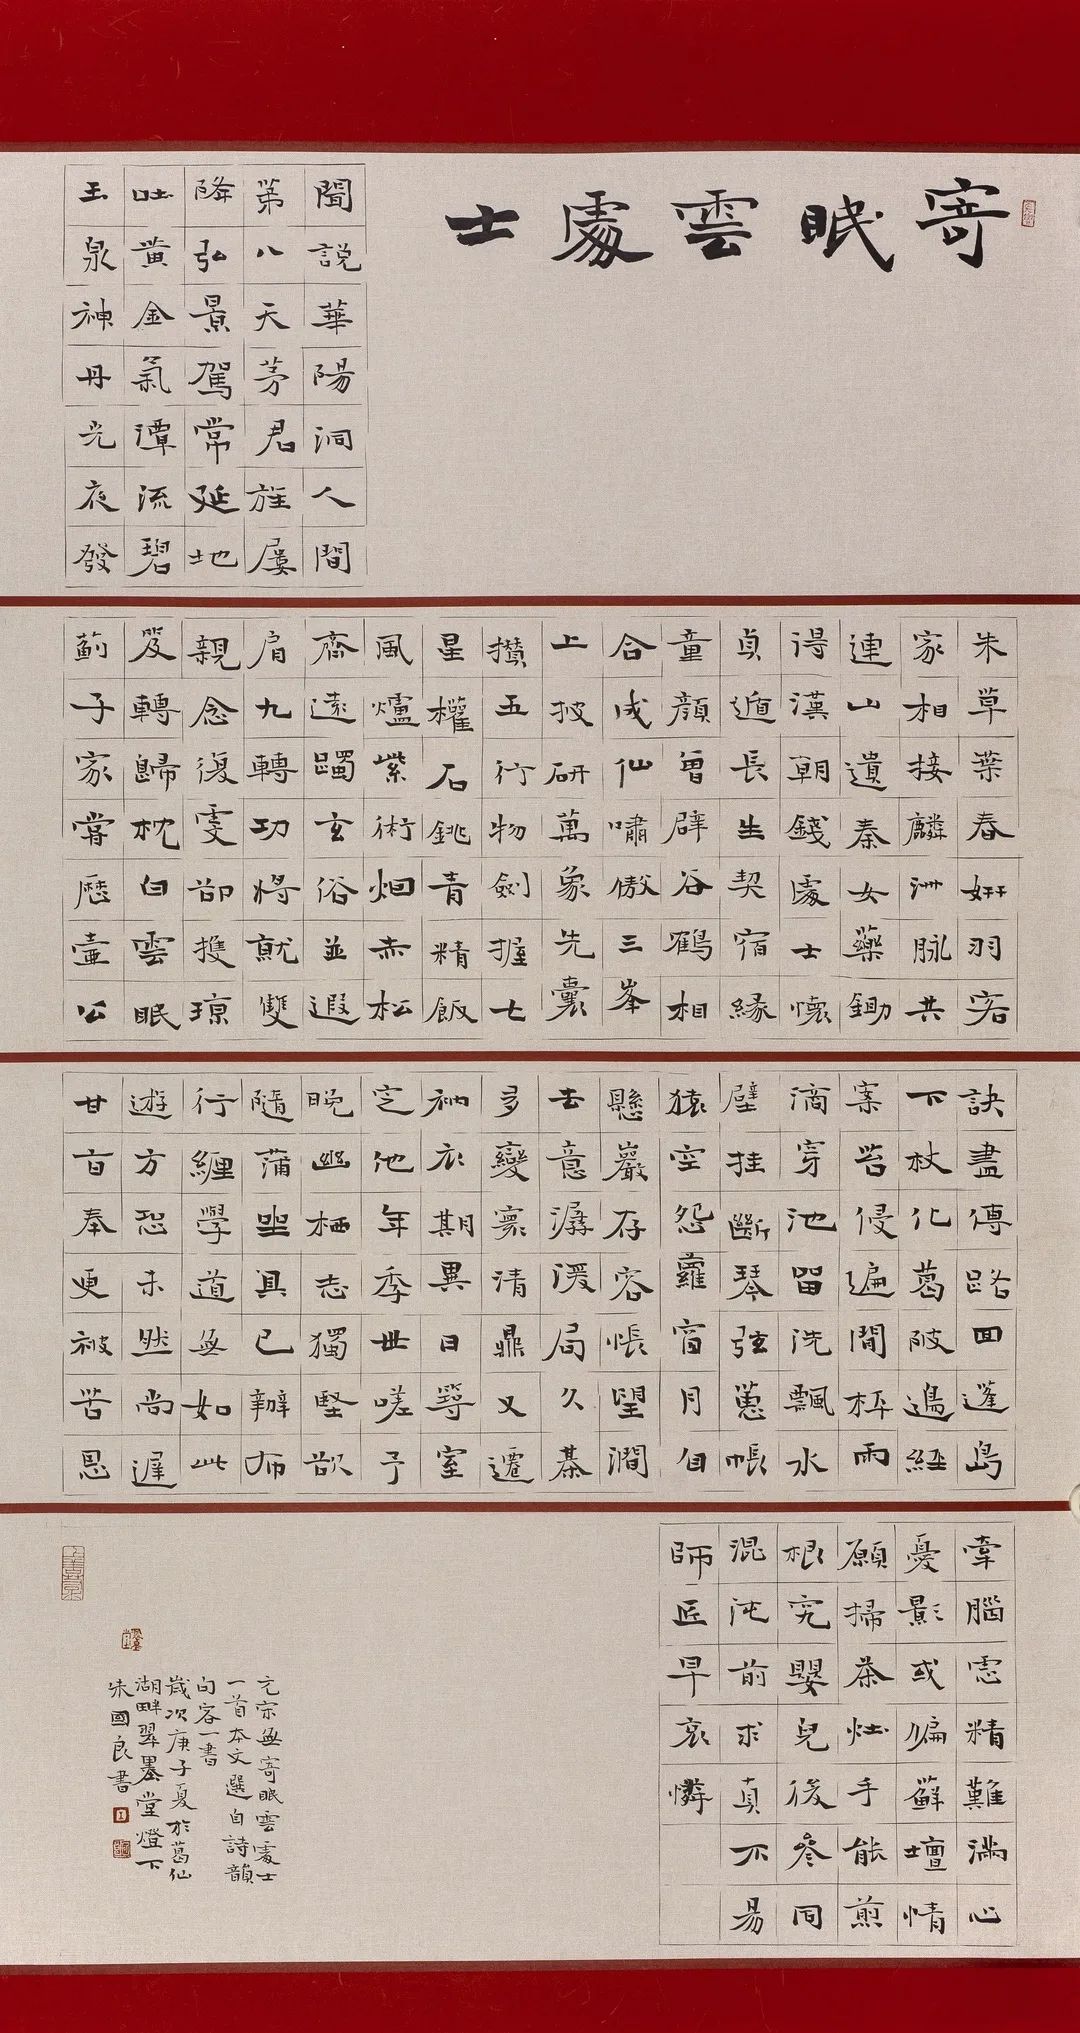 寄眠雲處士
聞說華陽洞人間
第八天茅君旌屢
降弘景駕常延地
吐黃金氣潭流碧
玉泉神丹光夜發
朱草葉春妍羽客
家相接麟洲脉共
連山遺秦女藥鋤
得漢朝錢處士懷
貞遁長生契宿緣
童顏曾辟谷鶴相
合成仙嘯傲三峯
上披研萬象先囊
攢五行物劍握七
星權石銚青精飯
風爐紫術烟赤松
齊遠躅玄俗並遐
肩九轉功將就雙
親念復雯卻攜琼
笈轉歸枕白雲眠
薊子家嘗歷壺公
訣盡傳路回蓬島
下杖化葛陂邊經
案苔侵遍閒枰雨
滴穿池留洗飄水
壁挂斷琴弦蕙帳
猿空怨蘿窗月自
懸巖存容悵望澗
去意潺湲局久棊
多變寰清鼎又遷
衲衣期異日尋室
定他年季世嗟予
晚幽栖志獨堅欲
隨蒲坐具已辦布
行纏學道無如此
遊方恐未然尚遲
甘旨奉更被苦恩
牽腦靈精難滿心
憂影或偏蘚壇情
願掃茶灶手能煎
根究嬰兒後參同
混沌前求真不易
師匠早哀憐
元宗無寄眠雲處士
一首本文選自詩韻
句容一書
歲次庚子夏於葛仙
湖畔翠墨堂燈下
朱國良書